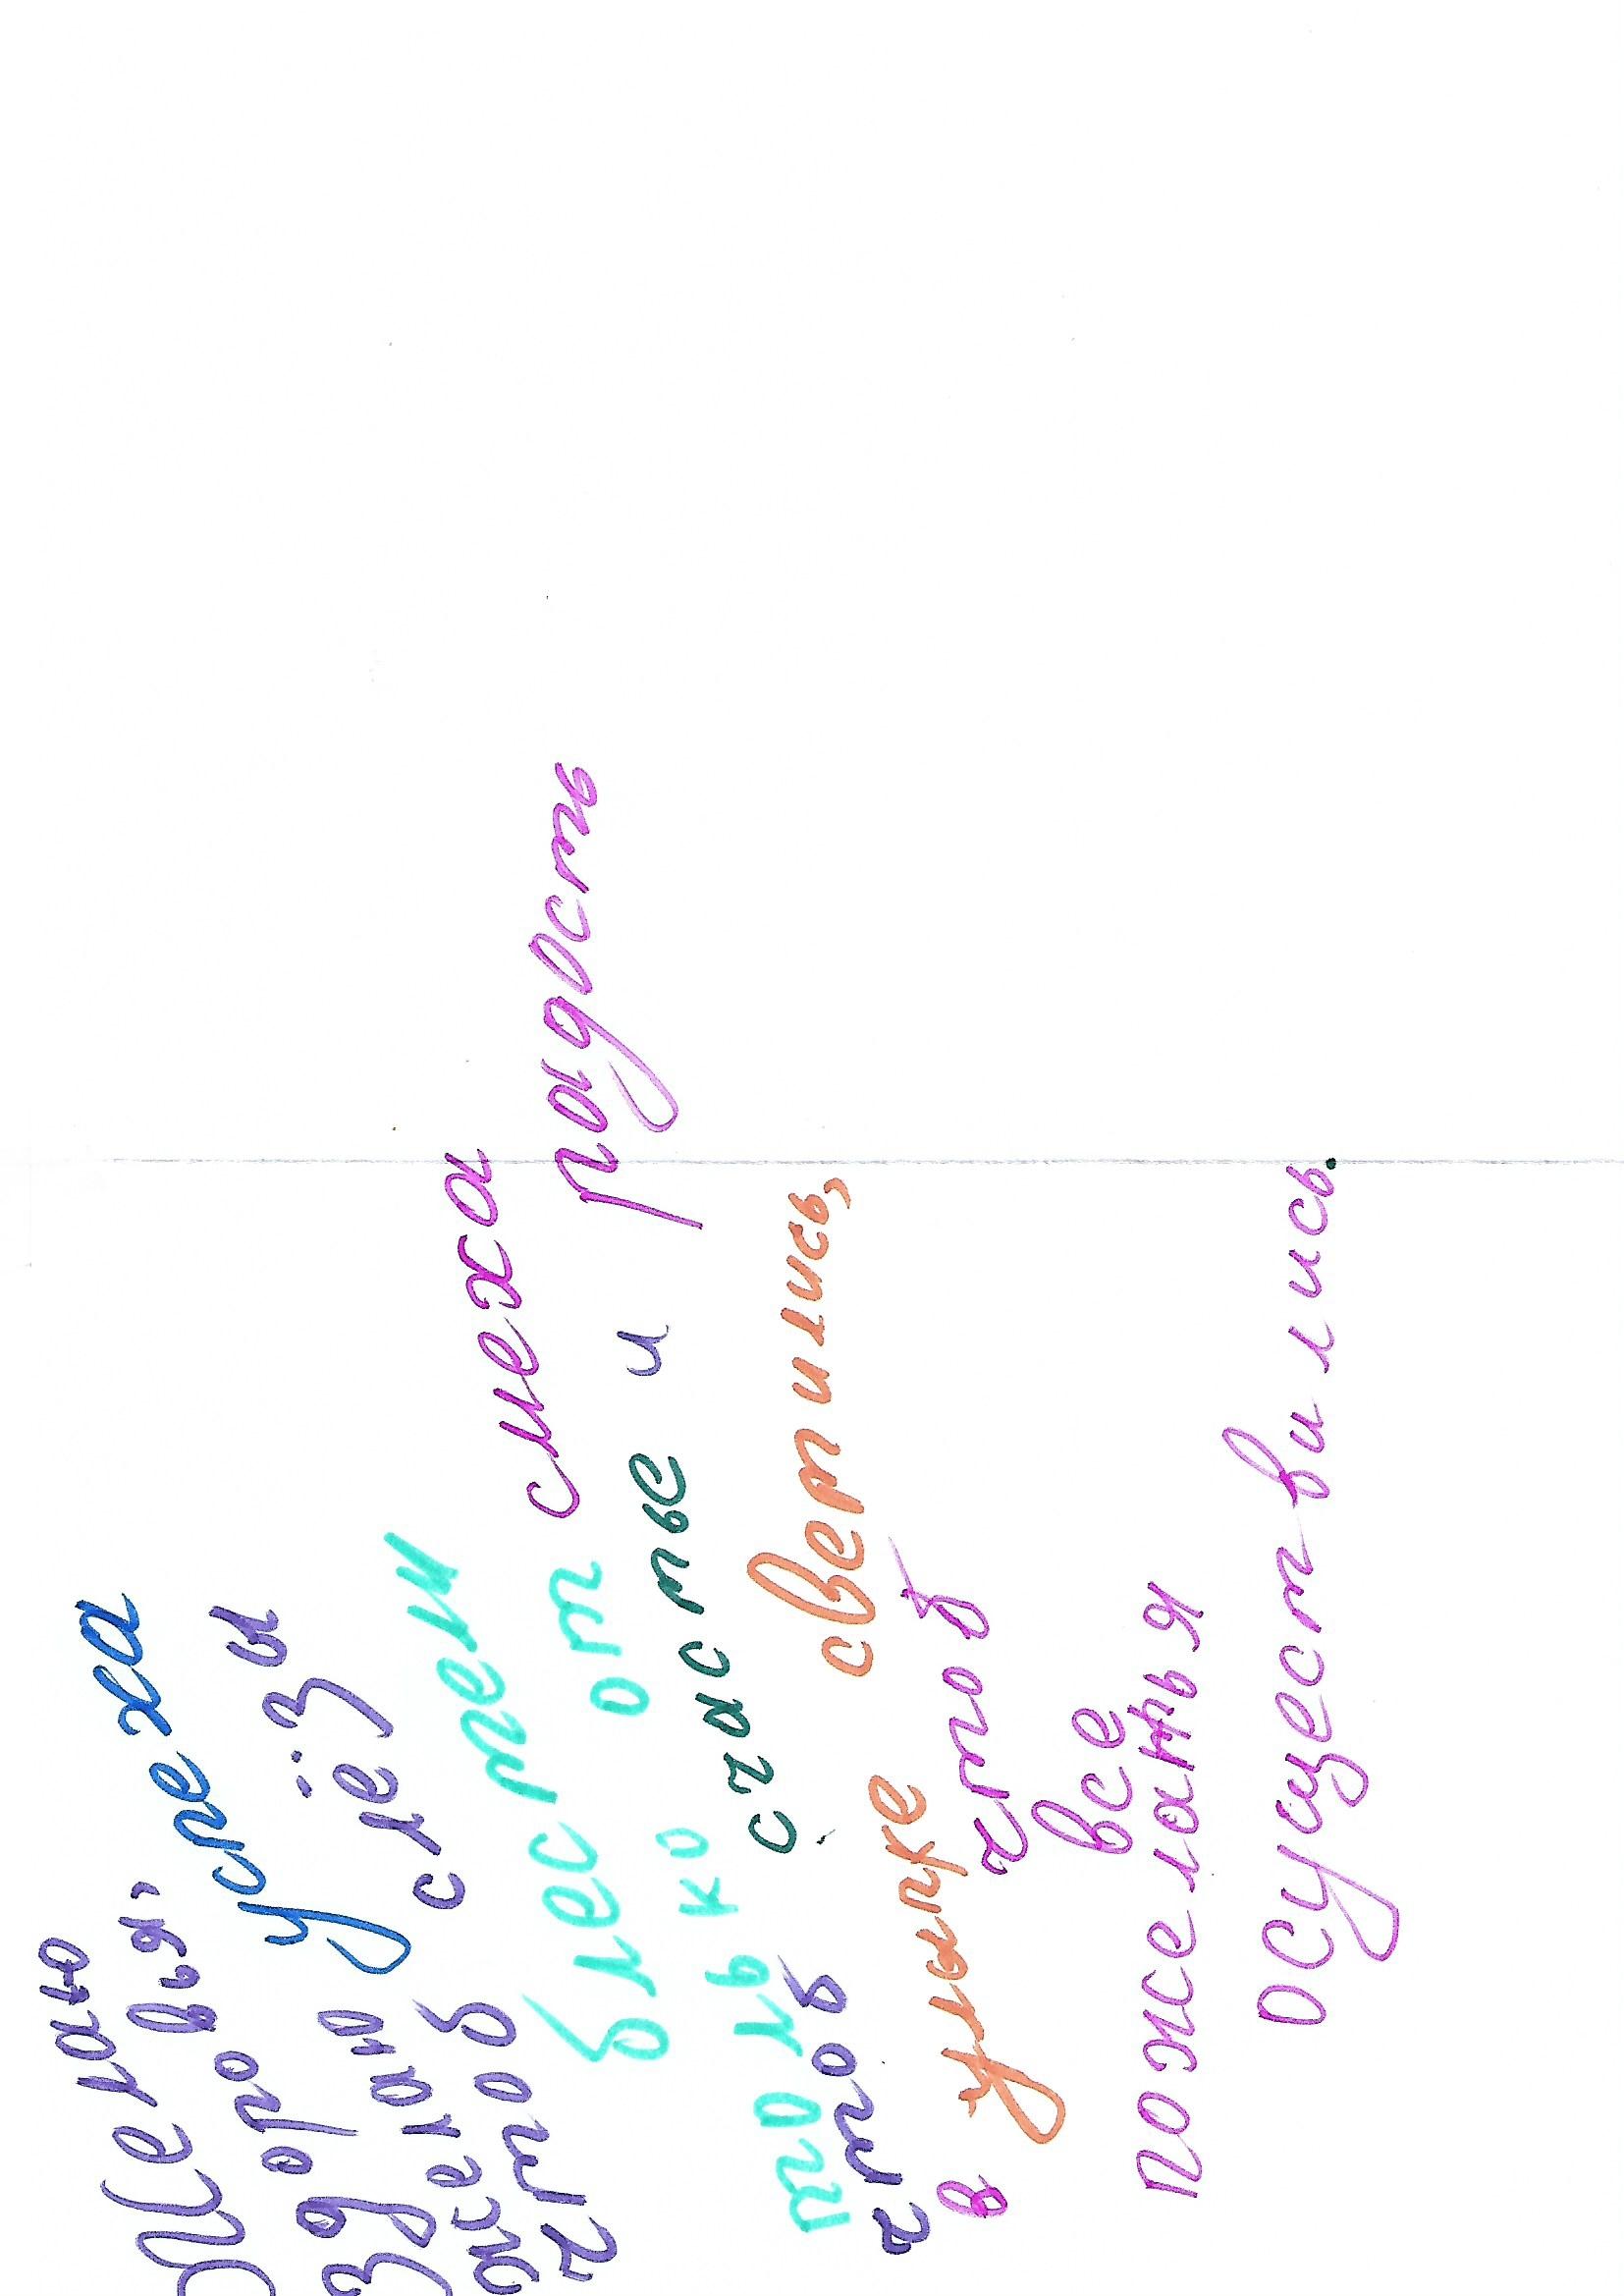 Желаю
здоровья,
желаю успеха
чтоб слёзы
блестели
только от смеха
чтоб счастье и радость
в улыпке светились,
чтоб
все
пожеланья
осуществились.